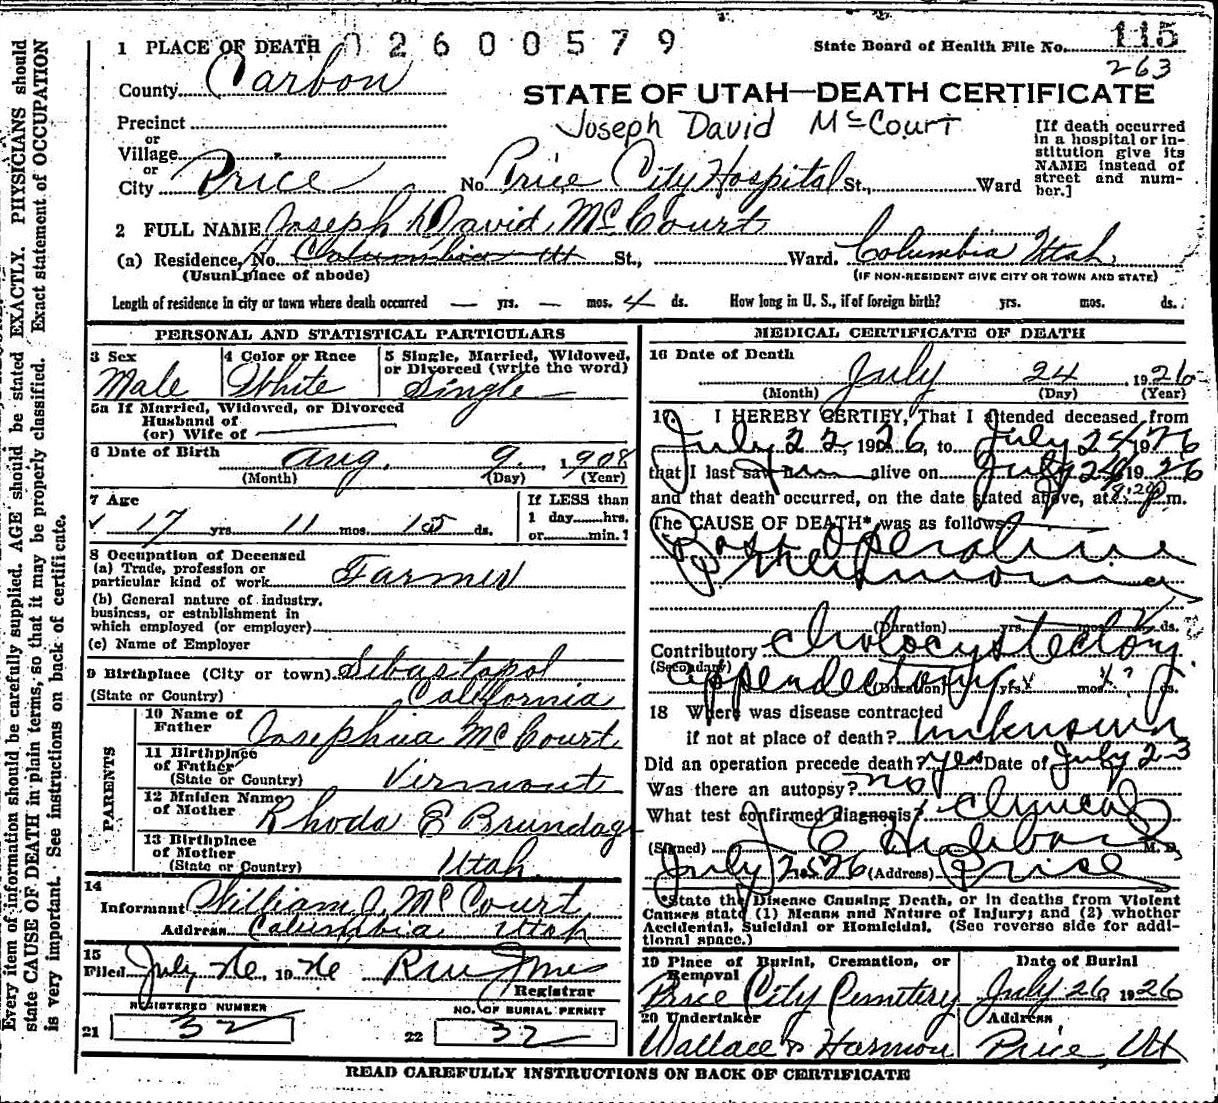 Every item of information should be carefully supplied. AGE should be stated EXACTLY. PHYSICIANS should
state CAUSE OF DEATH in plain terms, so that it may be properly classified. Exact statement of OCCUPATION
is very important. See instructions on back of certificate.
1 PLACE OF DEATH 02600579
State Board of Health File No. 115
263
County Carbon
STATE OF UTAH—DEATH CERTIFICATE
Joseph David McCourt
Precinct
or
Village
or
City Price No. Price City Hospital St., Ward
[If death occurred
in a hospital or in-
stitution give its
NAME instead of
street and num-
ber.]
2 FULL NAME Joseph David McCourt
(a) Residence, No. Columbia Ut St., Ward. Columbia Utah
(Usual place of abode) (IF NON-RESIDENT GIVE CITY OR TOWN AND STATE)
Length of residence in city or town where death occurred — yrs. — mos. 4 ds. How long in U. S., if of foreign birth? yrs. mos. ds.
PERSONAL AND STATISTICAL PARTICULARS
3 Sex
Male
4 Color or Race
White
5 Single, Married, Widowed,
or Divorced (write the word)
Single
5a If Married, Widowed, or Divorced
Husband of
(or) Wife of
6 Date of Birth Aug. 9, 1908
(Month) (Day) (Year)
7 Age
17 yrs. 11 mos. 15 ds.
If LESS than
1 day hrs.
or min.?
8 Occupation of Deceased
(a) Trade, profession or
particular kind of work Farmer
(b) General nature of industry,
business, or establishment in
which employed (or employer)
(c) Name of Employer
9 Birthplace (City or town) Sebastopol
(State or Country) California
PARENTS
10 Name of
Father Josephua McCourt
11 Birthplace
of Father
(State or Country) Vermont
12 Maiden Name
of Mother Rhoda E Brundag
13 Birthplace
of Mother
(State or Country) Utah
14
Informant William J McCourt
Address Columbia Utah
15
Filed July 26, 1926
Registrar
REGISTERED NUMBER
21 32
NO. OF BURIAL PERMIT
22 32
MEDICAL CERTIFICATE OF DEATH
16 Date of Death
July 24 1926
(Month) (Day) (Year)
17 I HEREBY CERTIFY, That I attended deceased from
July 22, 1926, to July 24 1926
that I last saw him alive on July 24 1926
and that death occurred, on the date stated above, at 9:20 p.m.
The CAUSE OF DEATH* was as follows:
Post Operative
Pneumonia
(Duration) yrs. mos. ds.
Contributory Cholocystectomy
(Secondary)
Appendectomy (Duration) yrs. mos. ds.
18 Where was disease contracted
if not at place of death? unknown
Did an operation precede death? yes Date of July 23
Was there an autopsy? no
What test confirmed diagnosis? Clynical
(Signed) J C Hubbard M. D.
July 25 26 (Address) Price
*State the Disease Causing Death, or in deaths from Violent
Causes state (1) Means and Nature of Injury; and (2) whether
Accidental, Suicidal or Homicidal. (See reverse side for addi-
tional space.)
19 Place of Burial, Cremation, or
Removal
Price City Cemetery
Date of Burial
July 26 1926
20 Undertaker
Wallace & Harmon
Address
Price, Ut
READ CAREFULLY INSTRUCTIONS ON BACK OF CERTIFICATE